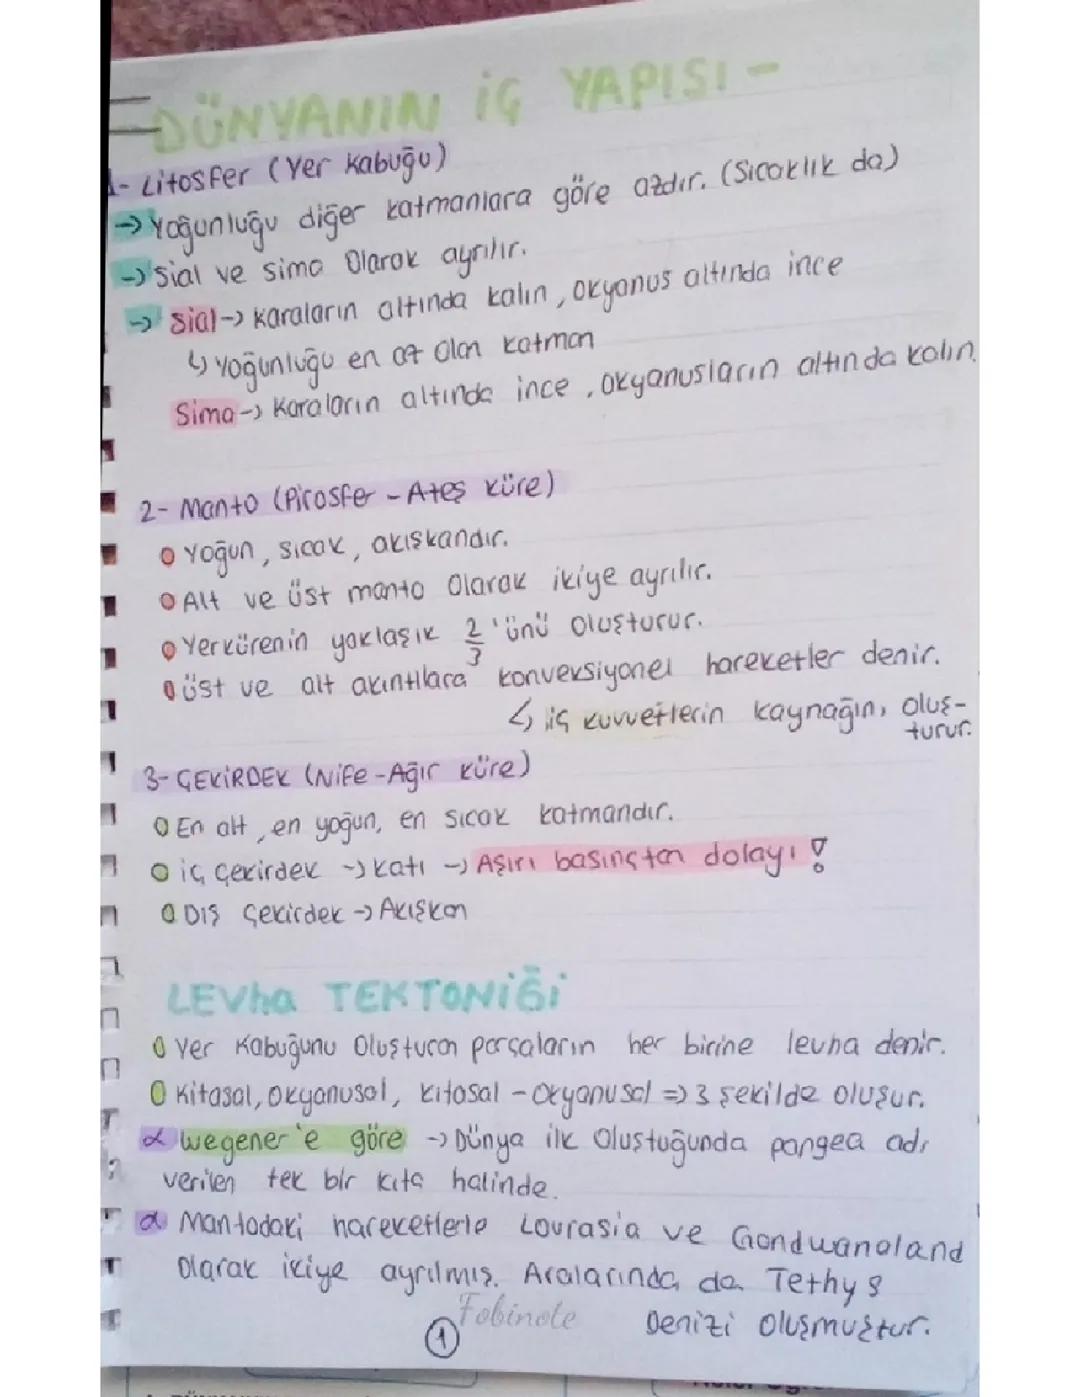 -DÜNYANIN İÇ YAPISI-
1- Litosfer (Yer Kabuğu)
→ Yoğunluğu diğer katmanlara göre azdır. (Sıcaklık da)
→ Sial ve sima olarak ayrılır.
→ Sial → Karaların altında kalın, okyanus altında ince
↳ Yoğunluğu en az olan katman
Sima → Karaların altında ince, okyanusların altında kalın.
2- Manto (Pirosfer - Ateş küre)
o Yoğun, sıcak, akışkandır.
o Alt ve üst manto olarak ikiye ayrılır.
o Yerkürenin yaklaşık 2/3 'ünü oluşturur.
o Üst ve alt akıntılara konveksiyonel hareketler denir.
↳ iç kuvvetlerin kaynağın, oluş-
turur.
3- ÇEKİRDEK (Nife - Ağır küre)
o En alt, en yoğun, en sıcak katmandır.
o iç çekirdek → katı → Aşırı basınçtan dolayı !
o Dış çekirdek → Akışkan
LEVha TEKTONİĞİ
o Yer Kabuğunu oluşturan parçaların her birine levha denir.
o Kıtasal, okyanusal, kıtasal - okyanusal => 3 şekilde oluşur.
α wegener'e göre → Dünya ilk oluştuğunda pangea adı
verilen tek bir kıta halinde.
α Mantodaki hareketlerle Lourasia ve Gondwanaland
olarak ikiye ayrılmış. Aralarında da Tethys
Denizi oluşmuştur.
Fobinote
1